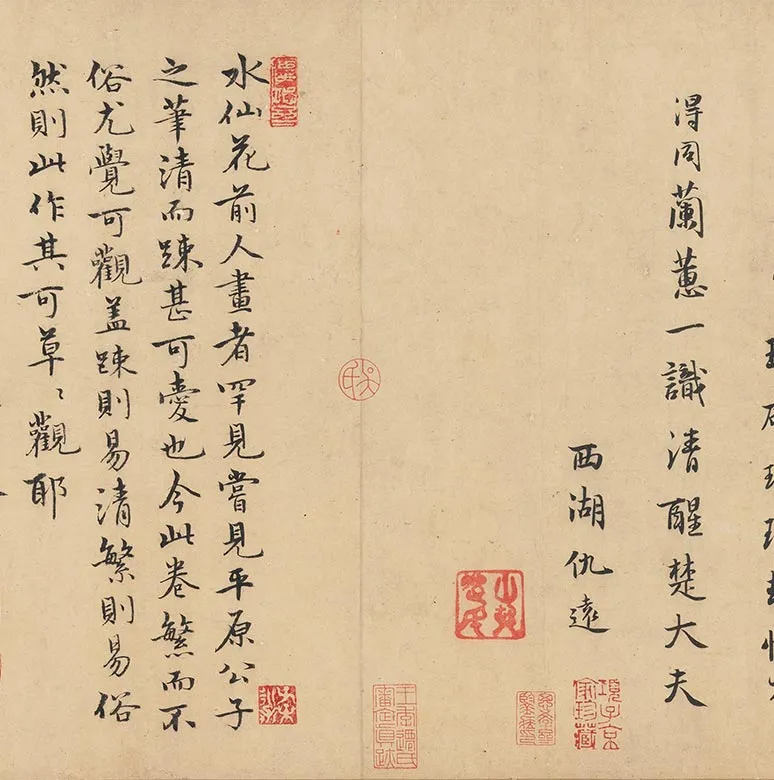 得同蘭蕙一識清醒楚大夫
西湖仇遠
項子京家珍藏
水仙花前人畫者罕見嘗見平原公子
之筆清而踈甚可愛也今此卷繁而不
俗尤覺可觀盖踈則易清繁則易俗
然則此作其可草〻觀耶